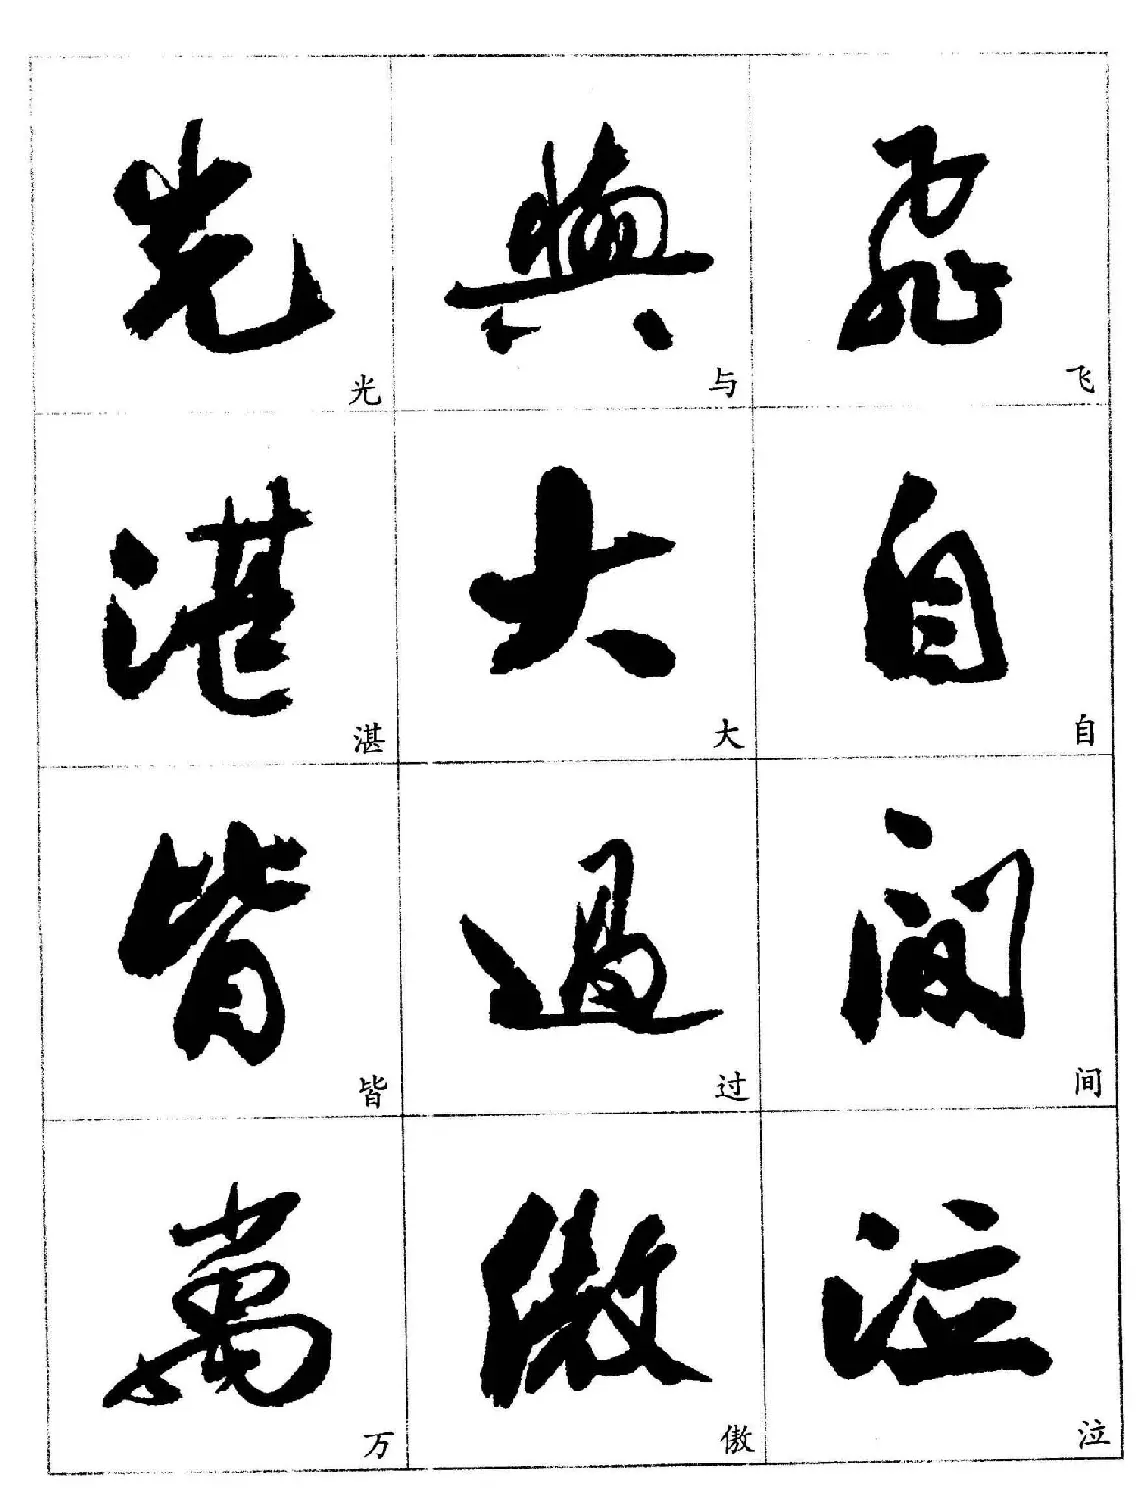 光 與 飛
光 与 飞
湛 大 自
湛 大 自
皆 過 間
皆 过 间
萬 傲 泣
万 傲 泣